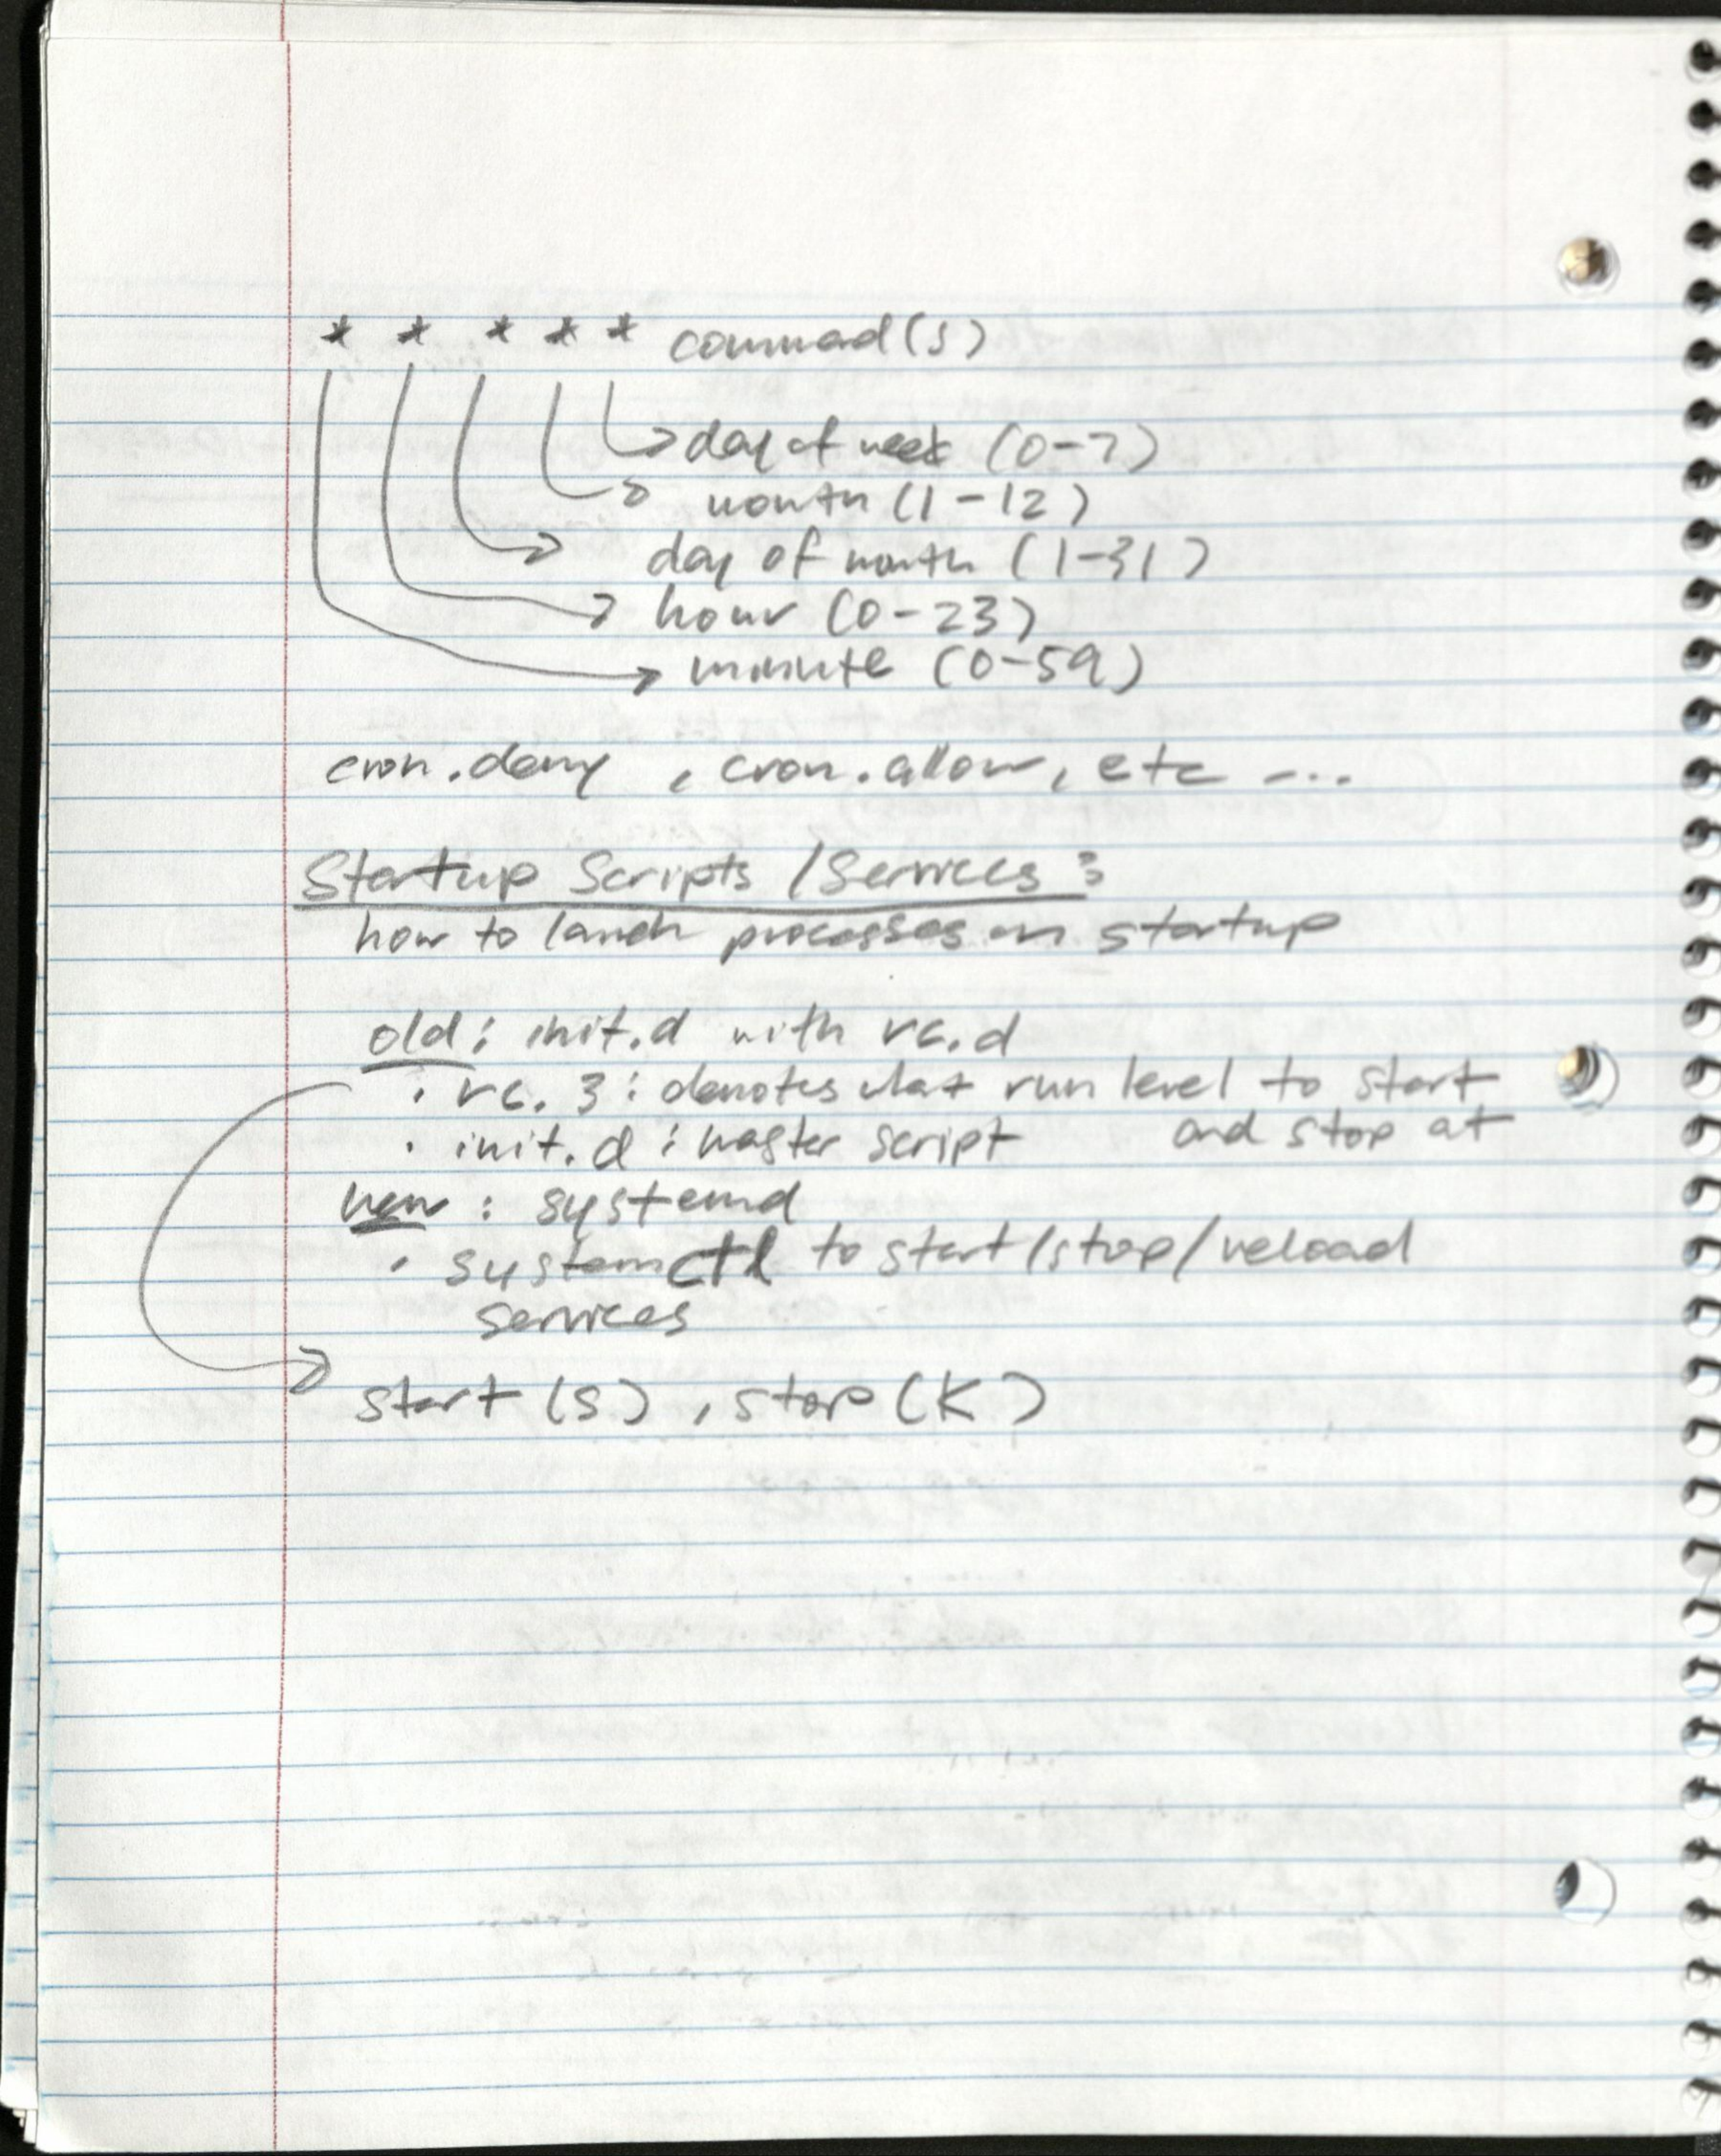 * * * * * command(s)
day of week (0-7)
month (1-12)
day of month (1-31)
hour (0-23)
minute (0-59)
cron.deny, cron.allow, etc ...
Startup Scripts / Services:
how to launch processes on startup
old: init.d with rc.d
· rc.3: denotes what run level to start
and stop at
· init.d: master script
new: systemd
· systemctl to start/stop/reload
services
start (S), stop (K)